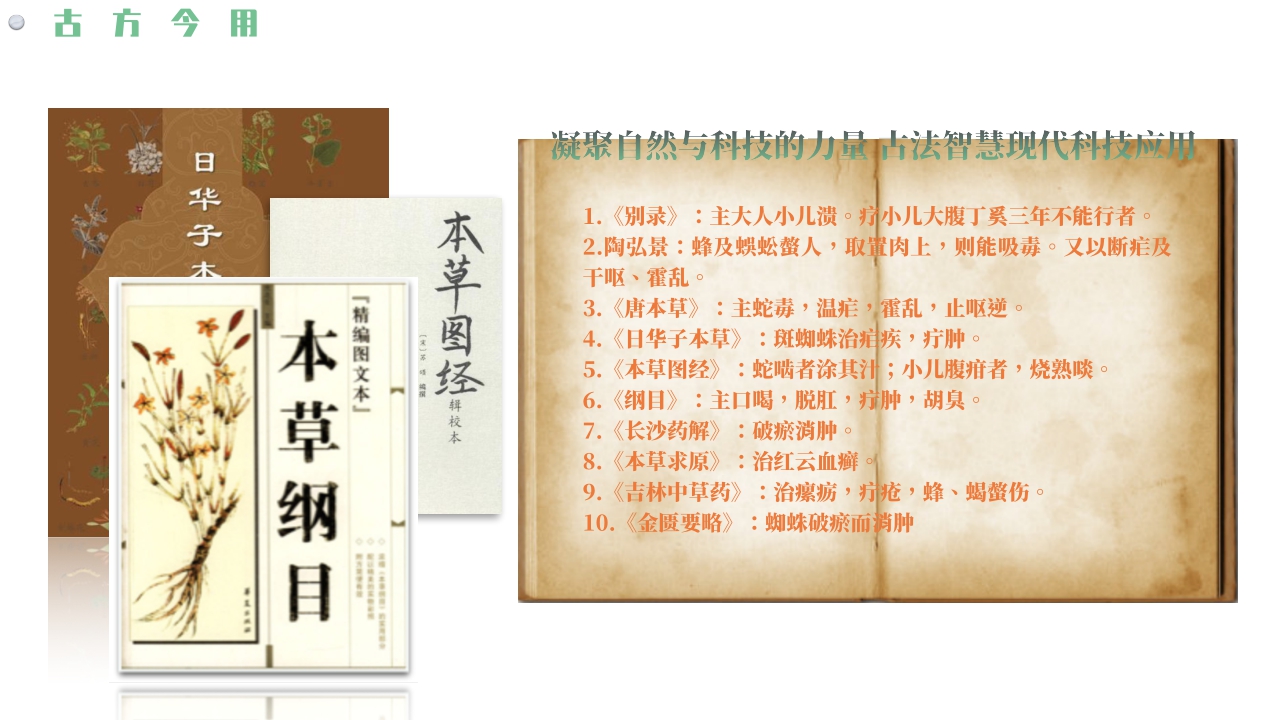 古方今用
日华子本
本草图经
[宋]苏颂 编撰
辑校本
『精编图文本』
本草纲目
华夏出版社
凝聚自然与科技的力量 古法智慧现代科技应用
1.《别录》：主大人小儿溃。疗小儿大腹丁奚三年不能行者。
2.陶弘景：蜂及蜈蚣螫人，取置肉上，则能吸毒。又以断疟及
干呕、霍乱。
3.《唐本草》：主蛇毒，温疟，霍乱，止呕逆。
4.《日华子本草》：斑蜘蛛治疟疾，疔肿。
5.《本草图经》：蛇啮者涂其汁；小儿腹疳者，烧熟啖。
6.《纲目》：主口喎，脱肛，疔肿，胡臭。
7.《长沙药解》：破瘀消肿。
8.《本草求原》：治红云血癣。
9.《吉林中草药》：治瘰疬，疔疮，蜂、蝎螫伤。
10.《金匮要略》：蜘蛛破瘀而消肿